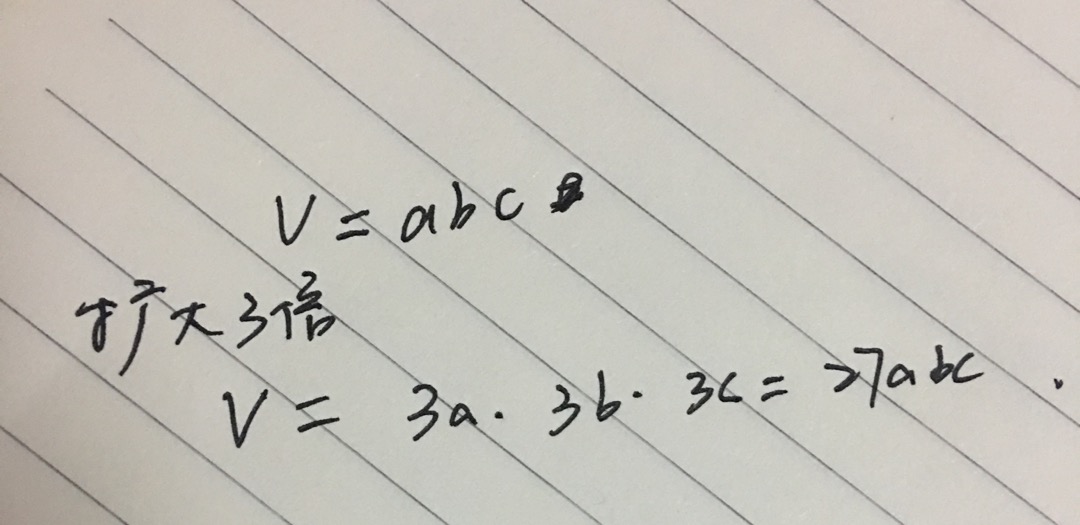 V = abc
扩大3倍
V = 3a· 3b· 3c = 27abc.